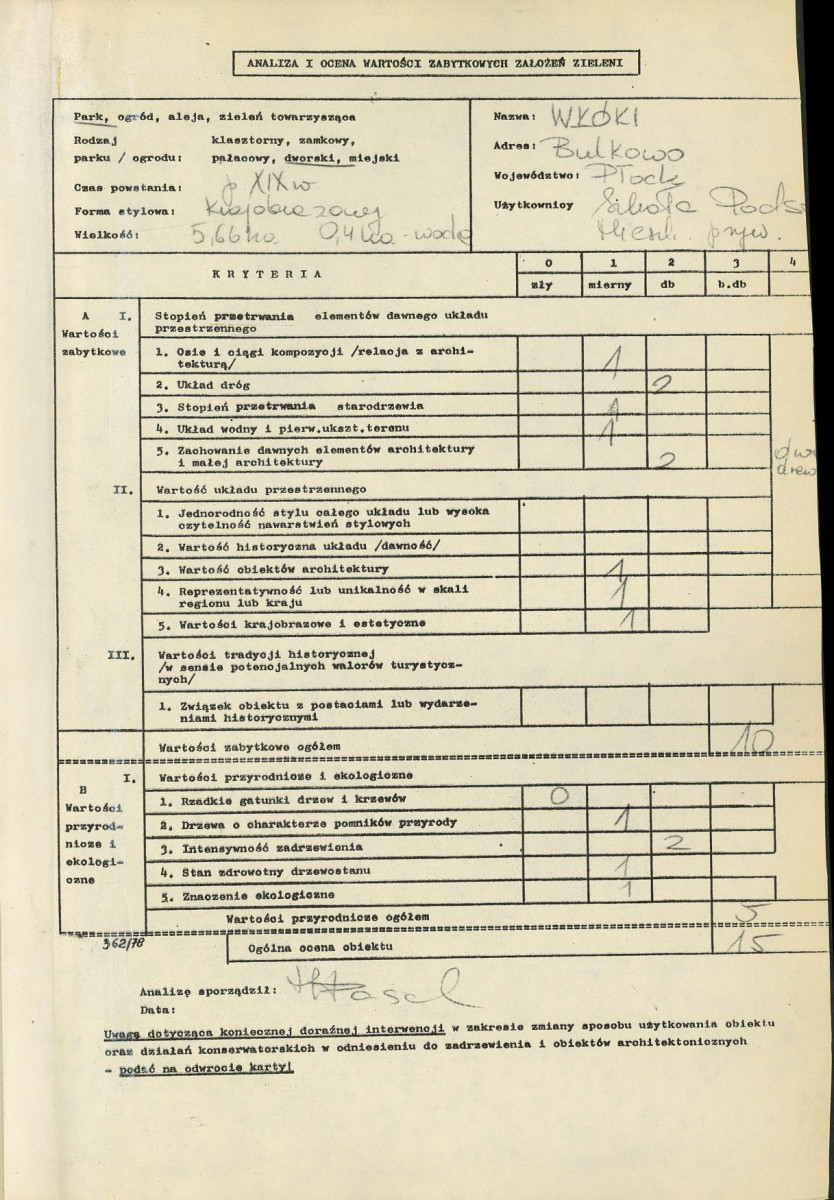 ANALIZA I OCENA WARTOŚCI ZABYTKOWYCH ZAŁOŻEŃ ZIELENI
Park, ogród, aleja, zieleń towarzysząca
Rodzaj klasztorny, zamkowy,
parku / ogrodu: pałacowy, dworski, miejski
Czas powstania: p XIX w
Forma stylowa: Krajobrazowy
Wielkość: 5,66 ha 0,4 ha - woda
Nazwa: WŁÓKI
Adres: Bulkowo
Województwo: Płock
Użytkownicy Szkoła Podst
Mieszk. pryw.
KRYTERIA
0 1 2 3 4
zły mierny db b.db
A I. Stopień przetrwania elementów dawnego układu
Wartości przestrzennego
zabytkowe
1. Osie i ciągi kompozycji /relacja z archi-
tekturą/ 1
2. Układ dróg 2
3. Stopień przetrwania starodrzewia 1
4. Układ wodny i pierw.ukszt.terenu 1
5. Zachowanie dawnych elementów architektury
i małej architektury 2
drew
II. Wartość układu przestrzennego
1. Jednorodność stylu całego układu lub wysoka
czytelność nawarstwień stylowych
2. Wartość historyczna układu /dawność/
3. Wartość obiektów architektury 1
4. Reprezentatywność lub unikalność w skali
regionu lub kraju 1
5. Wartości krajobrazowe i estetyczne 1
III. Wartości tradycji historycznej
/w sensie potencjalnych walorów turystycz-
nych/
1. Związek obiektu z postaciami lub wydarze-
niami historycznymi
Wartości zabytkowe ogółem 10
B I. Wartości przyrodnicze i ekologiczne
Wartości
przyrod-
nicze i
ekologi-
czne
1. Rzadkie gatunki drzew i krzewów 0
2. Drzewa o charakterze pomników przyrody 1
3. Intensywność zadrzewienia 2
4. Stan zdrowotny drzewostanu 1
5. Znaczenie ekologiczne 1
Wartości przyrodnicze ogółem 5
362/78
Ogólna ocena obiektu 15
Analizę sporządził:
Data:
Uwagę dotycząca koniecznej doraźnej interwencji w zakresie zmiany sposobu użytkowania obiektu
oraz działań konserwatorskich w odniesieniu do zadrzewienia i obiektów architektonicznych
- podać na odwrocie karty!